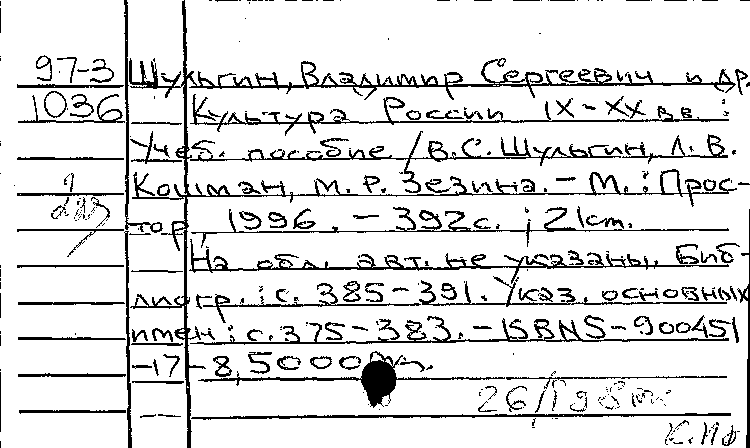 97-3 Шульгин, Владимир Сергеевич и др.
1036 Культура России IX-XX вв :
Учеб. пособие / В.С. Шульгин, Л. В.
Кошман, М. Р. Зезина. - М. : Прос-
тор, 1996. - 392с. ; 21см.
На обл. авт. не указаны. Биб-
лиогр. : с. 385-391. Указ. основных
имен : с. 375-383. - ISBN5-900451
-17-8, 5000